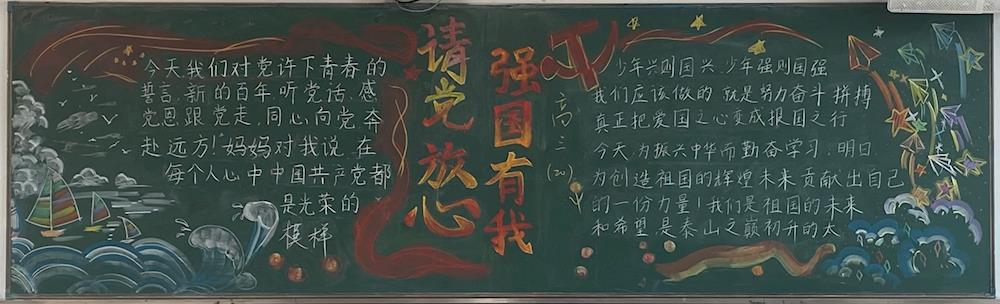 今天我们对党许下青春的
誓言,新的百年听党话,感
党恩跟党走,同心向党,奔
赴远方!妈妈对我说,在
每个人心中中国共产党都
是光荣的
模样
请党放心
强国有我
高三(20)
少年兴则国兴,少年强则国强
我们应该做的,就是努力奋斗拼搏
真正把爱国之心变成报国之行
今天,为振兴中华而勤奋学习,明日
为创造祖国的辉煌未来贡献出自己
的一份力量!我们是祖国的未来
和希望,是泰山之巅初升的太